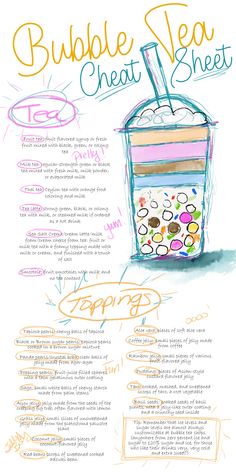 Bubble Tea
Cheat Sheet
Tea
Fruit tea: fruit flavored syrup or fresh
fruit mixed with black, green, or oolong
tea
Pretty!
Milk tea: regular-strength green or black
tea mixed with fresh milk, milk powder,
or evaporated milk
Thai tea: Ceylon tea with orange food
coloring and milk
Tea Latte: strong green, black, or oolong
tea with milk, or steamed milk if ordered
as a hot drink
Yum!
Sea Salt Cream: cream latte, milk
foam, cream cheese foam, tea, fruit or
milk tea with a foamy topping made with
milk or cream, and finished with a touch
of salt
Smoothie: fruit smoothies with milk and
no tea content
Toppings
Tapioca pearls: chewy balls of tapioca
Black or Brown sugar pearls: tapioca pearls
cooked in a brown sugar mixture
Panda pearls/crystal boba: clear balls of
jelly made from agar-agar
Popping pearls: fruit juice filled spheres
with a thin gelatinous outer coating
Sago: small white balls of chewy starch
made from palm stems
Aiyu jelly: jelly made from the seeds of the
fig, often flavored with lemon
Grass jelly: small slices of uncarved
jelly made from the
plant
Coconut jelly: small pieces of
coconut flavored jelly
Red bean: pieces of sweetened cooked
adzuki bean
Aloe vera: pieces of soft aloe vera
Coffee jelly: small pieces of jelly made
from coffee
Rainbow jelly: small pieces of various
fruit flavored jelly
Pudding: pieces of Asian-style
custard flavored jelly
Taro: cooked, mashed, and sweetened
slices of taro root vegetable
Basil seeds: soaked seeds of basil
plants with a jelly-like outer coating
and a crunchy seed inside
Tip: Remember that ice levels and
sugar levels are almost always
customizable at bubble tea cafes
(anywhere from zero percent ice and
sugar to full sugar and ice. For those
who like their drinks very, very cold
and extra sweet!)